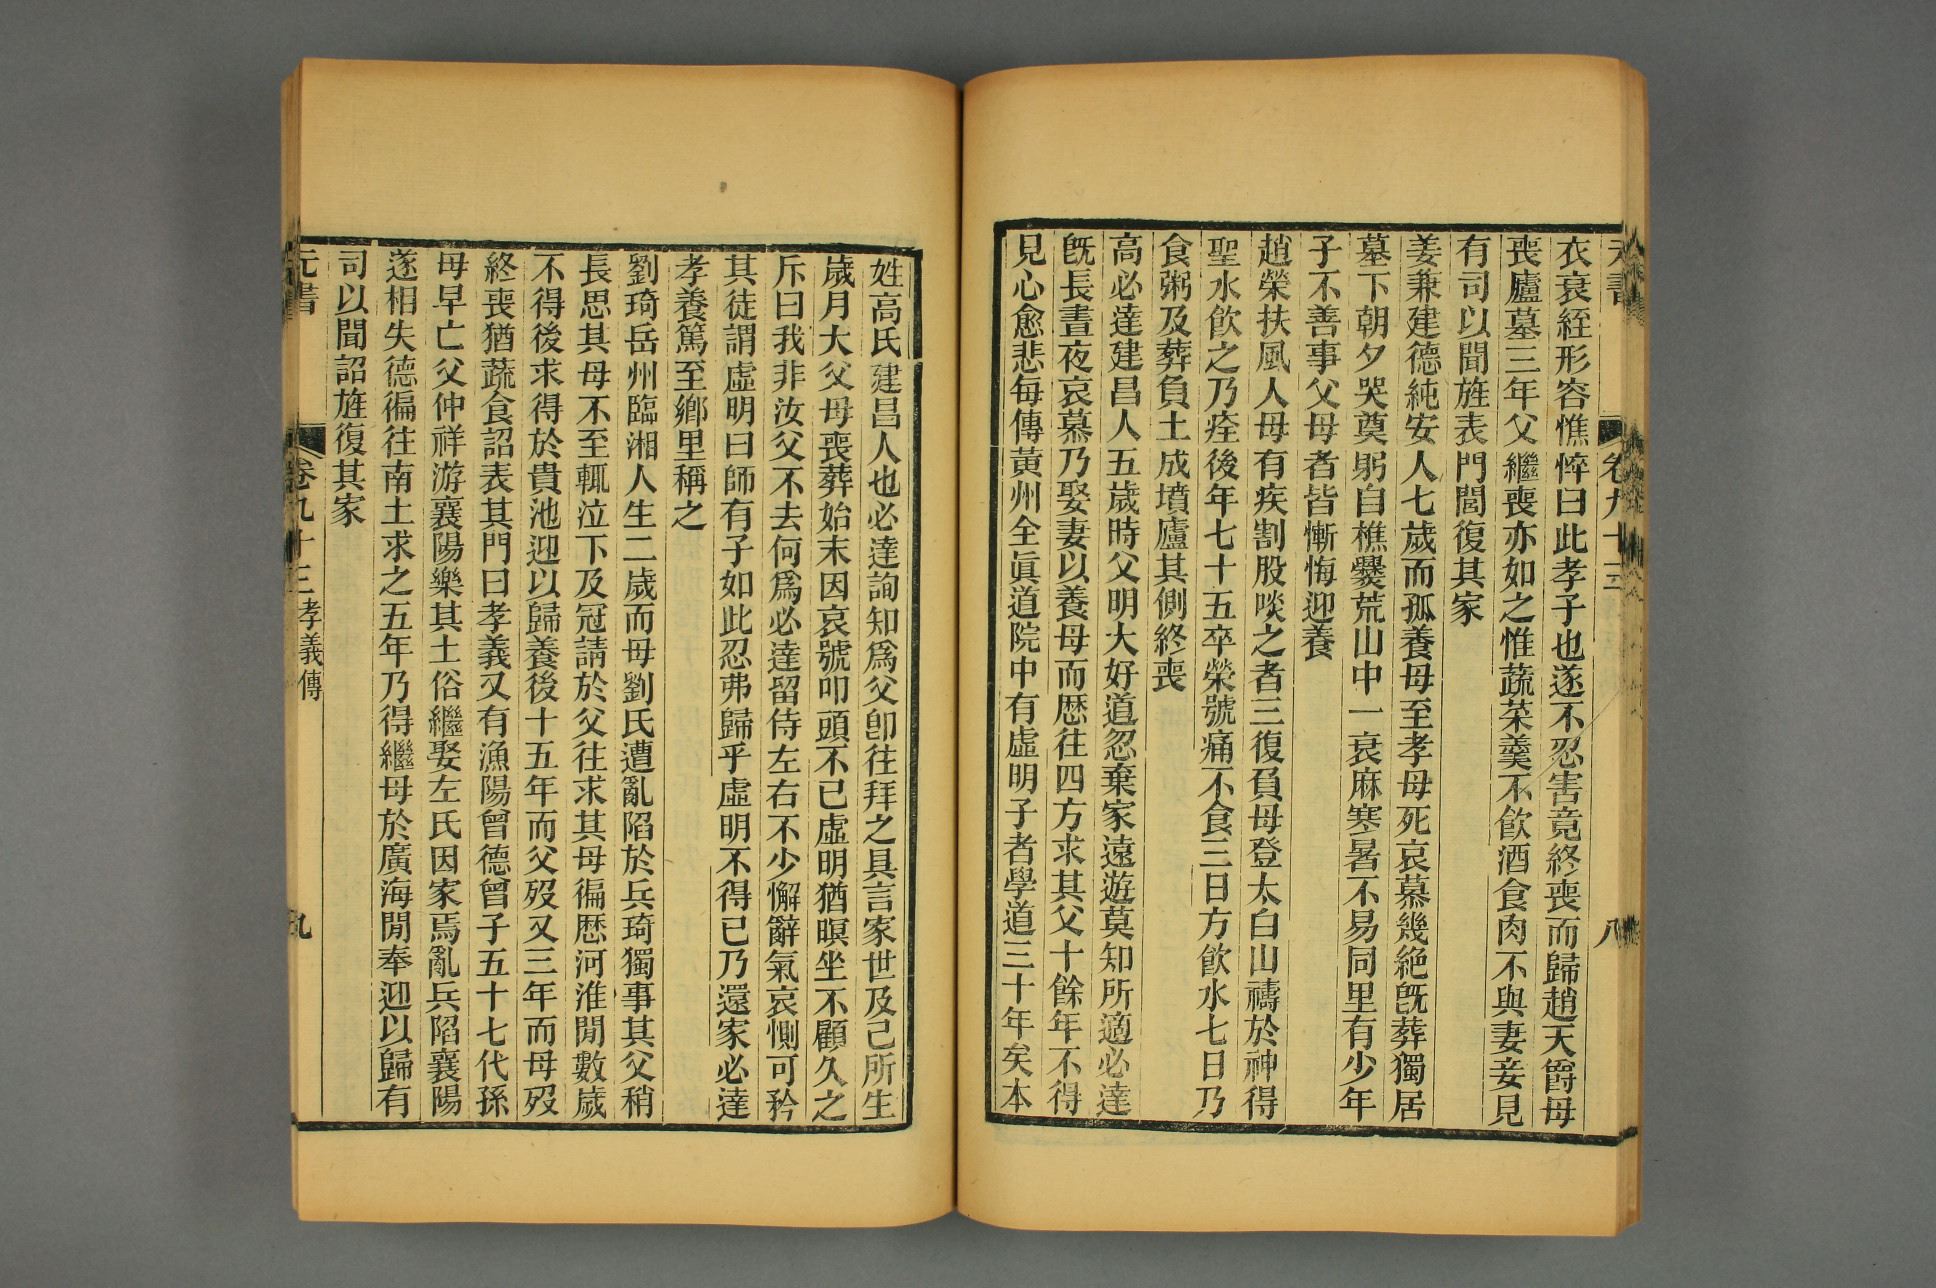 元書 卷九十三 八
衣衰絰形容憔悴曰此孝子也遂不忍害竟終喪而歸趙天爵母
喪廬墓三年父繼喪亦如之惟蔬菜羹不飲酒食肉不與妻妾見
有司以聞旌表門閭復其家
姜兼建德純安人七歲而孤養母至孝母死哀慕幾絕旣葬獨居
墓下朝夕哭奠躬自樵爨荒山中一衰麻寒暑不易同里有少年
子不善事父母者皆慚悔迎養
趙榮扶風人母有疾割股啖之者三復負母登太白山禱於神得
聖水飲之乃痊後年七十五卒榮號痛不食三日方飲水七日乃
食粥及葬負土成墳廬其側終喪
高必達建昌人五歲時父明大好道忽棄家遠遊莫知所適必達
旣長晝夜哀慕乃娶妻以養母而歷往四方求其父十餘年不得
見心愈悲每傳黃州全眞道院中有虛明子者學道三十年矣本
姓高氏建昌人也必達詢知爲父卽往拜之具言家世及己所生
歲月大父母喪葬始末因哀號叩頭不已虛明猶瞑坐不顧久之
斥曰我非汝父不去何爲必達留侍左右不少懈辭氣哀惻可矜
其徒謂虛明曰師有子如此忍弗歸乎虛明不得已乃還家必達
孝養篤至鄉里稱之
劉琦岳州臨湘人生二歲而母劉氏遭亂陷於兵琦獨事其父稍
長思其母不至輒泣下及冠請於父往求其母徧歷河淮閒數歲
不得後求得於貴池迎以歸養後十五年而父歿又三年而母歿
終喪猶蔬食詔表其門曰孝義又有漁陽曾德曾子五十七代孫
母早亡父仲祥游襄陽樂其土俗繼娶左氏因家焉亂兵陷襄陽
遂相失德徧往南土求之五年乃得繼母於廣海閒奉迎以歸有
司以聞詔旌復其家
元書 卷九十三 孝義傳 九